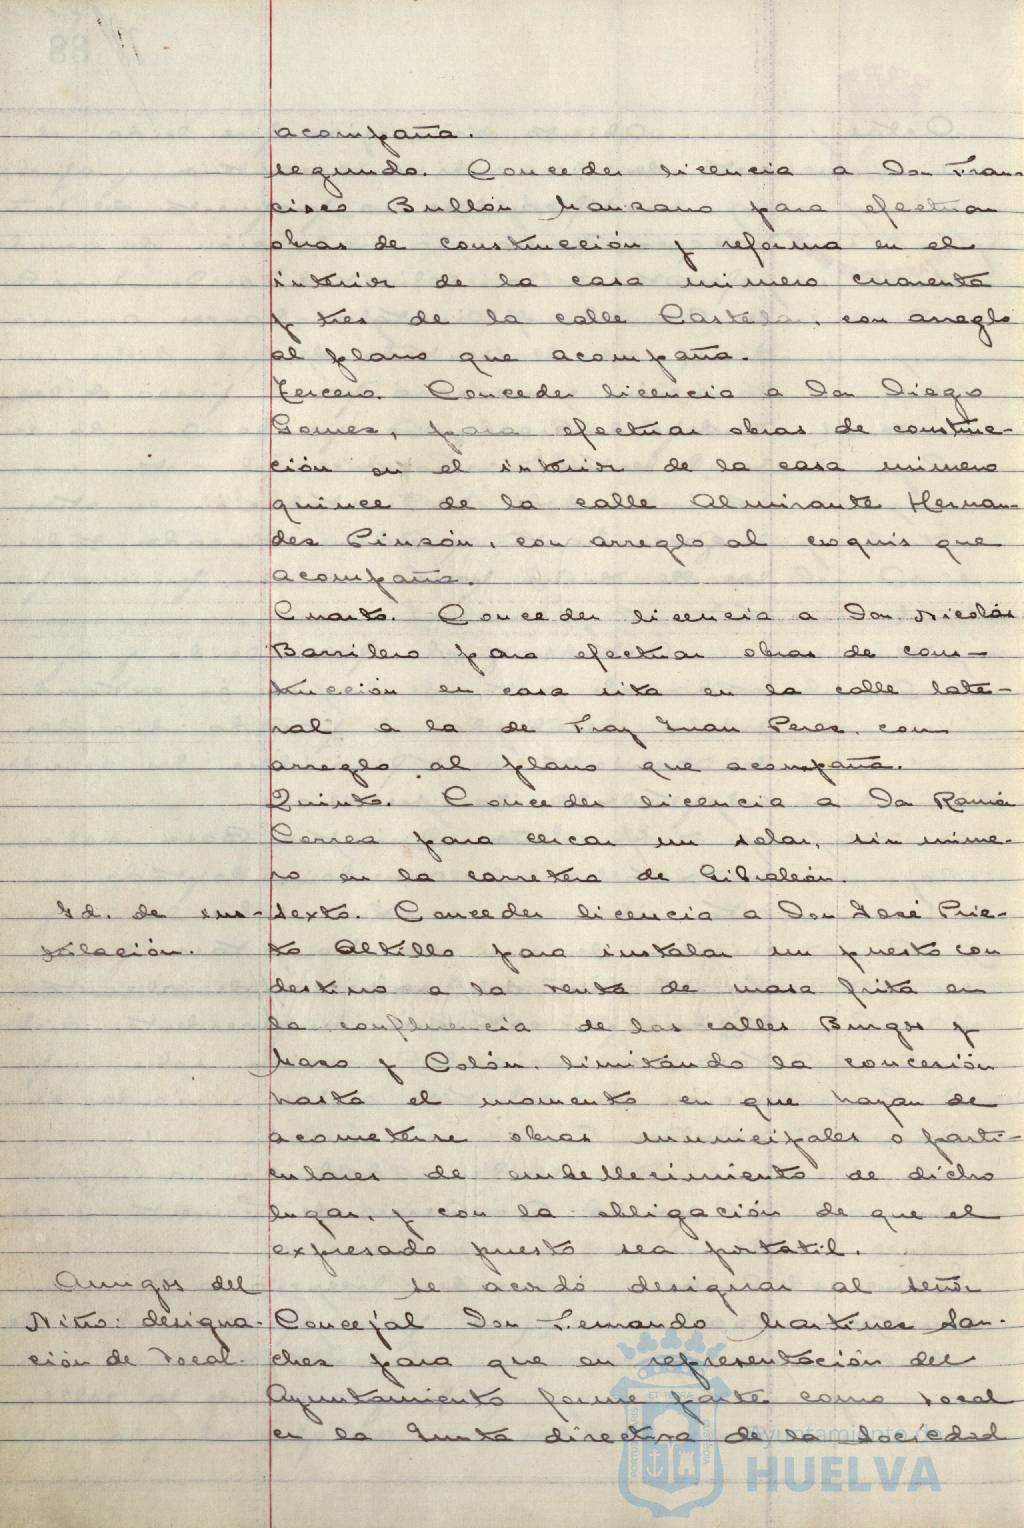 acompaña.
Segundo. Conceder licencia a Don Fran-
cisco Bullón Manzano para efectuar
obras de construcción y reforma en el
interior de la casa número cuarenta
y tres de la calle Castelar, con arreglo
al plano que acompaña.
Tercero. Conceder licencia a Don Diego
Gomez, para efectuar obras de construc-
ción en el interior de la casa número
quince de la calle Almirante Hernan-
dez Pinzón, con arreglo al croquis que
acompaña.
Cuarto. Conceder licencia a Don Nicolás
Barrilero para efectuar obras de cons-
trucción en casa sita en la calle late-
ral a la de Fray Juan Perez, con
arreglo al plano que acompaña.
Quinto. Conceder licencia a Don Ramón
Correa para cercar un solar, sin núme-
ro en la carretera de Gibraleón.
Id. de ins-
talación.
Sexto. Conceder licencia a Don José Prie-
to Altillo para instalar un puesto con
destino a la venta de masa frita en
la confluencia de las calles Burgos y
Mazo y Colón, limitando la concesión
hasta el momento en que hayan de
acometerse obras municipales o parti-
culares de embellecimiento de dicho
lugar, y con la obligación de que el
expresado puesto sea portatil.
Amigos del
Niño: designa-
ción de Vocal.
Se acordó designar al Señor
Concejal Don Fernando Martinez San-
chez para que en representación del
Ayuntamiento forme parte como Vocal
en la Junta directiva de la Sociedad
Ayuntamiento de
HUELVA